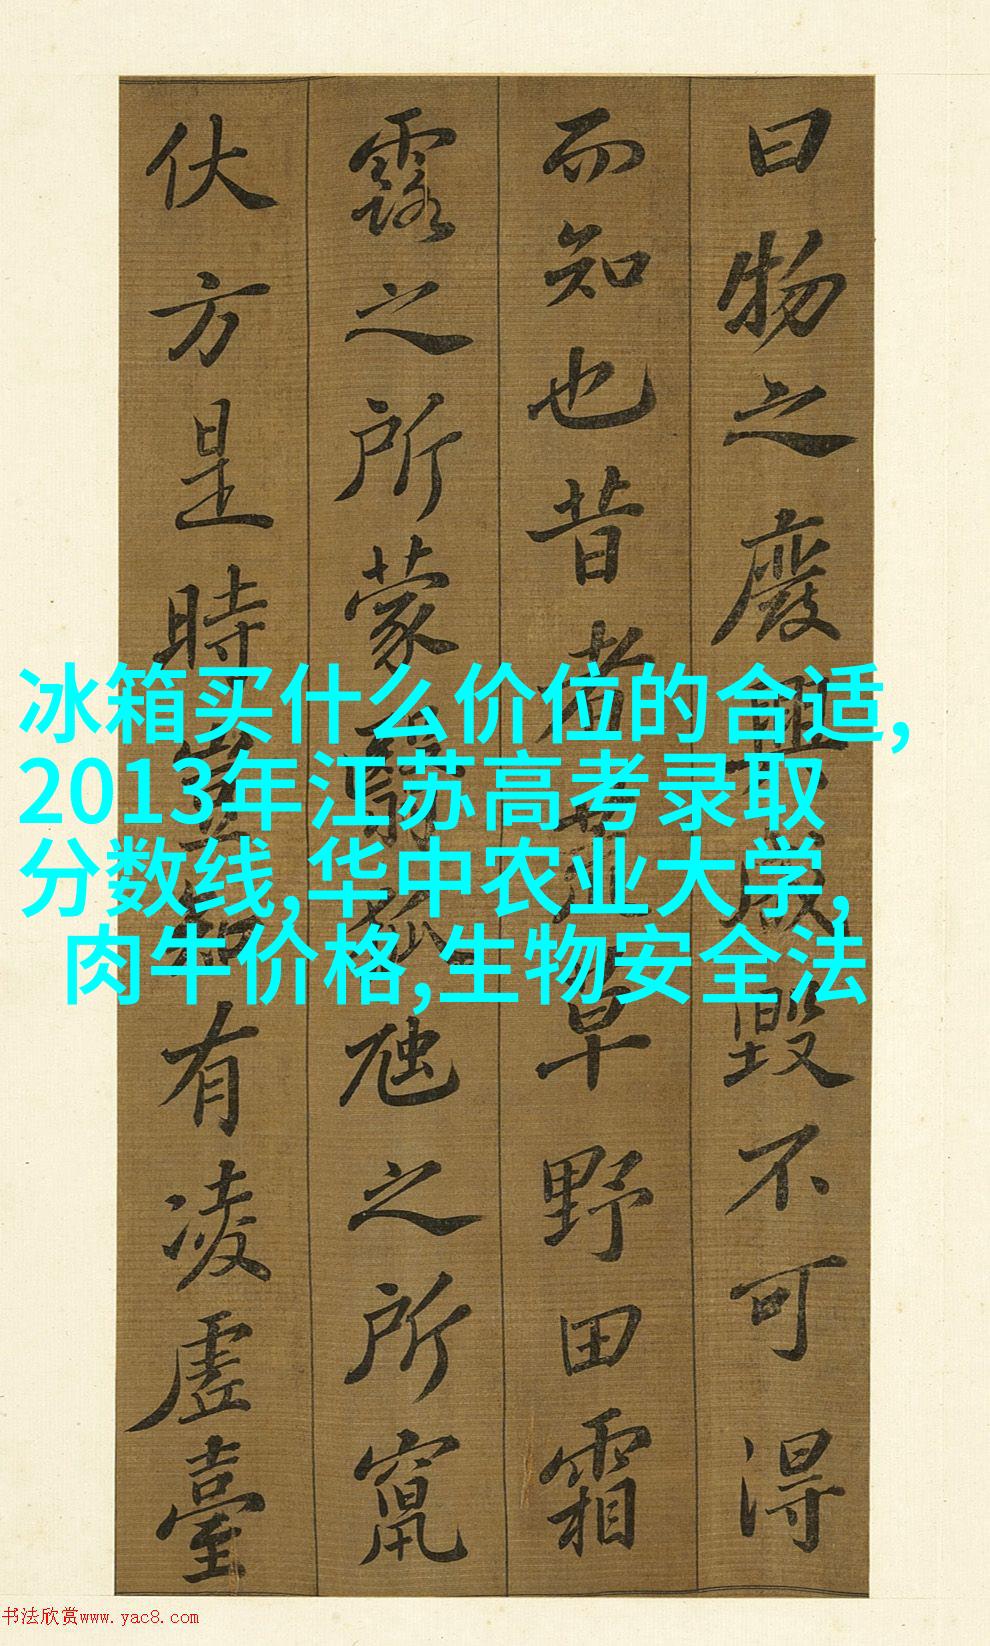 曰物之廢興成毀不可得
而知也昔者荒草野田霜
露之所蒙翳狐虺之所竄
伏方是時豈知有凌虛臺
冰箱买什么价位的合适,
2013年江苏高考录取
分数线,华中农业大学,
肉牛价格,生物安全法
书法欣赏www.yac8.com